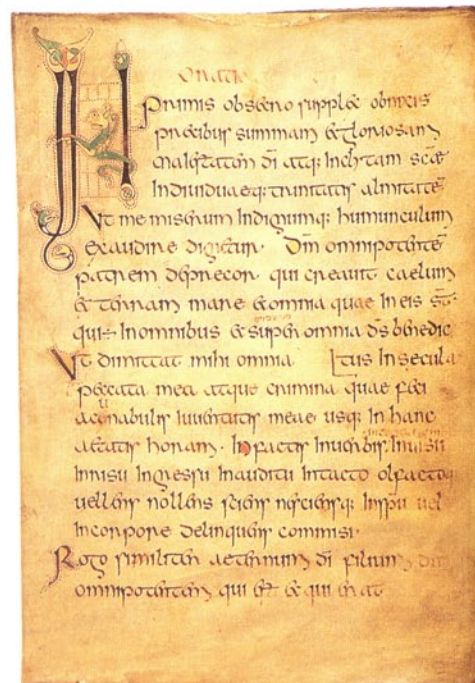 INprimis obsecro supplex obnixis
precibus summam & gloriosam
maiestatem di atq; inclytam scae
individuaeq; trinitatis almitatē
Ut me miserum indignumq; humunculum
exaudire dignetur. Dm omnipotentē
patrem deprecor qui creavit caelum
& terram mare & omnia quae in eis st
qui ÷ in omnibus & super omnia ds benedic
Ut dimittat mihi omnia tus in secula
peccata mea atque crimina quae feci
acunabulis iuventutis meae usq; in hanc
aetatis horam. In factis in verbis. In visu
In risu in gressu in auditu in tacto olfactoq;
vellens nollens sciens nesciensq; in spu vel
in corpore delinquens commisi.
Rogo similiter aeternum di filium dm
omnipotentem qui est & qui erat